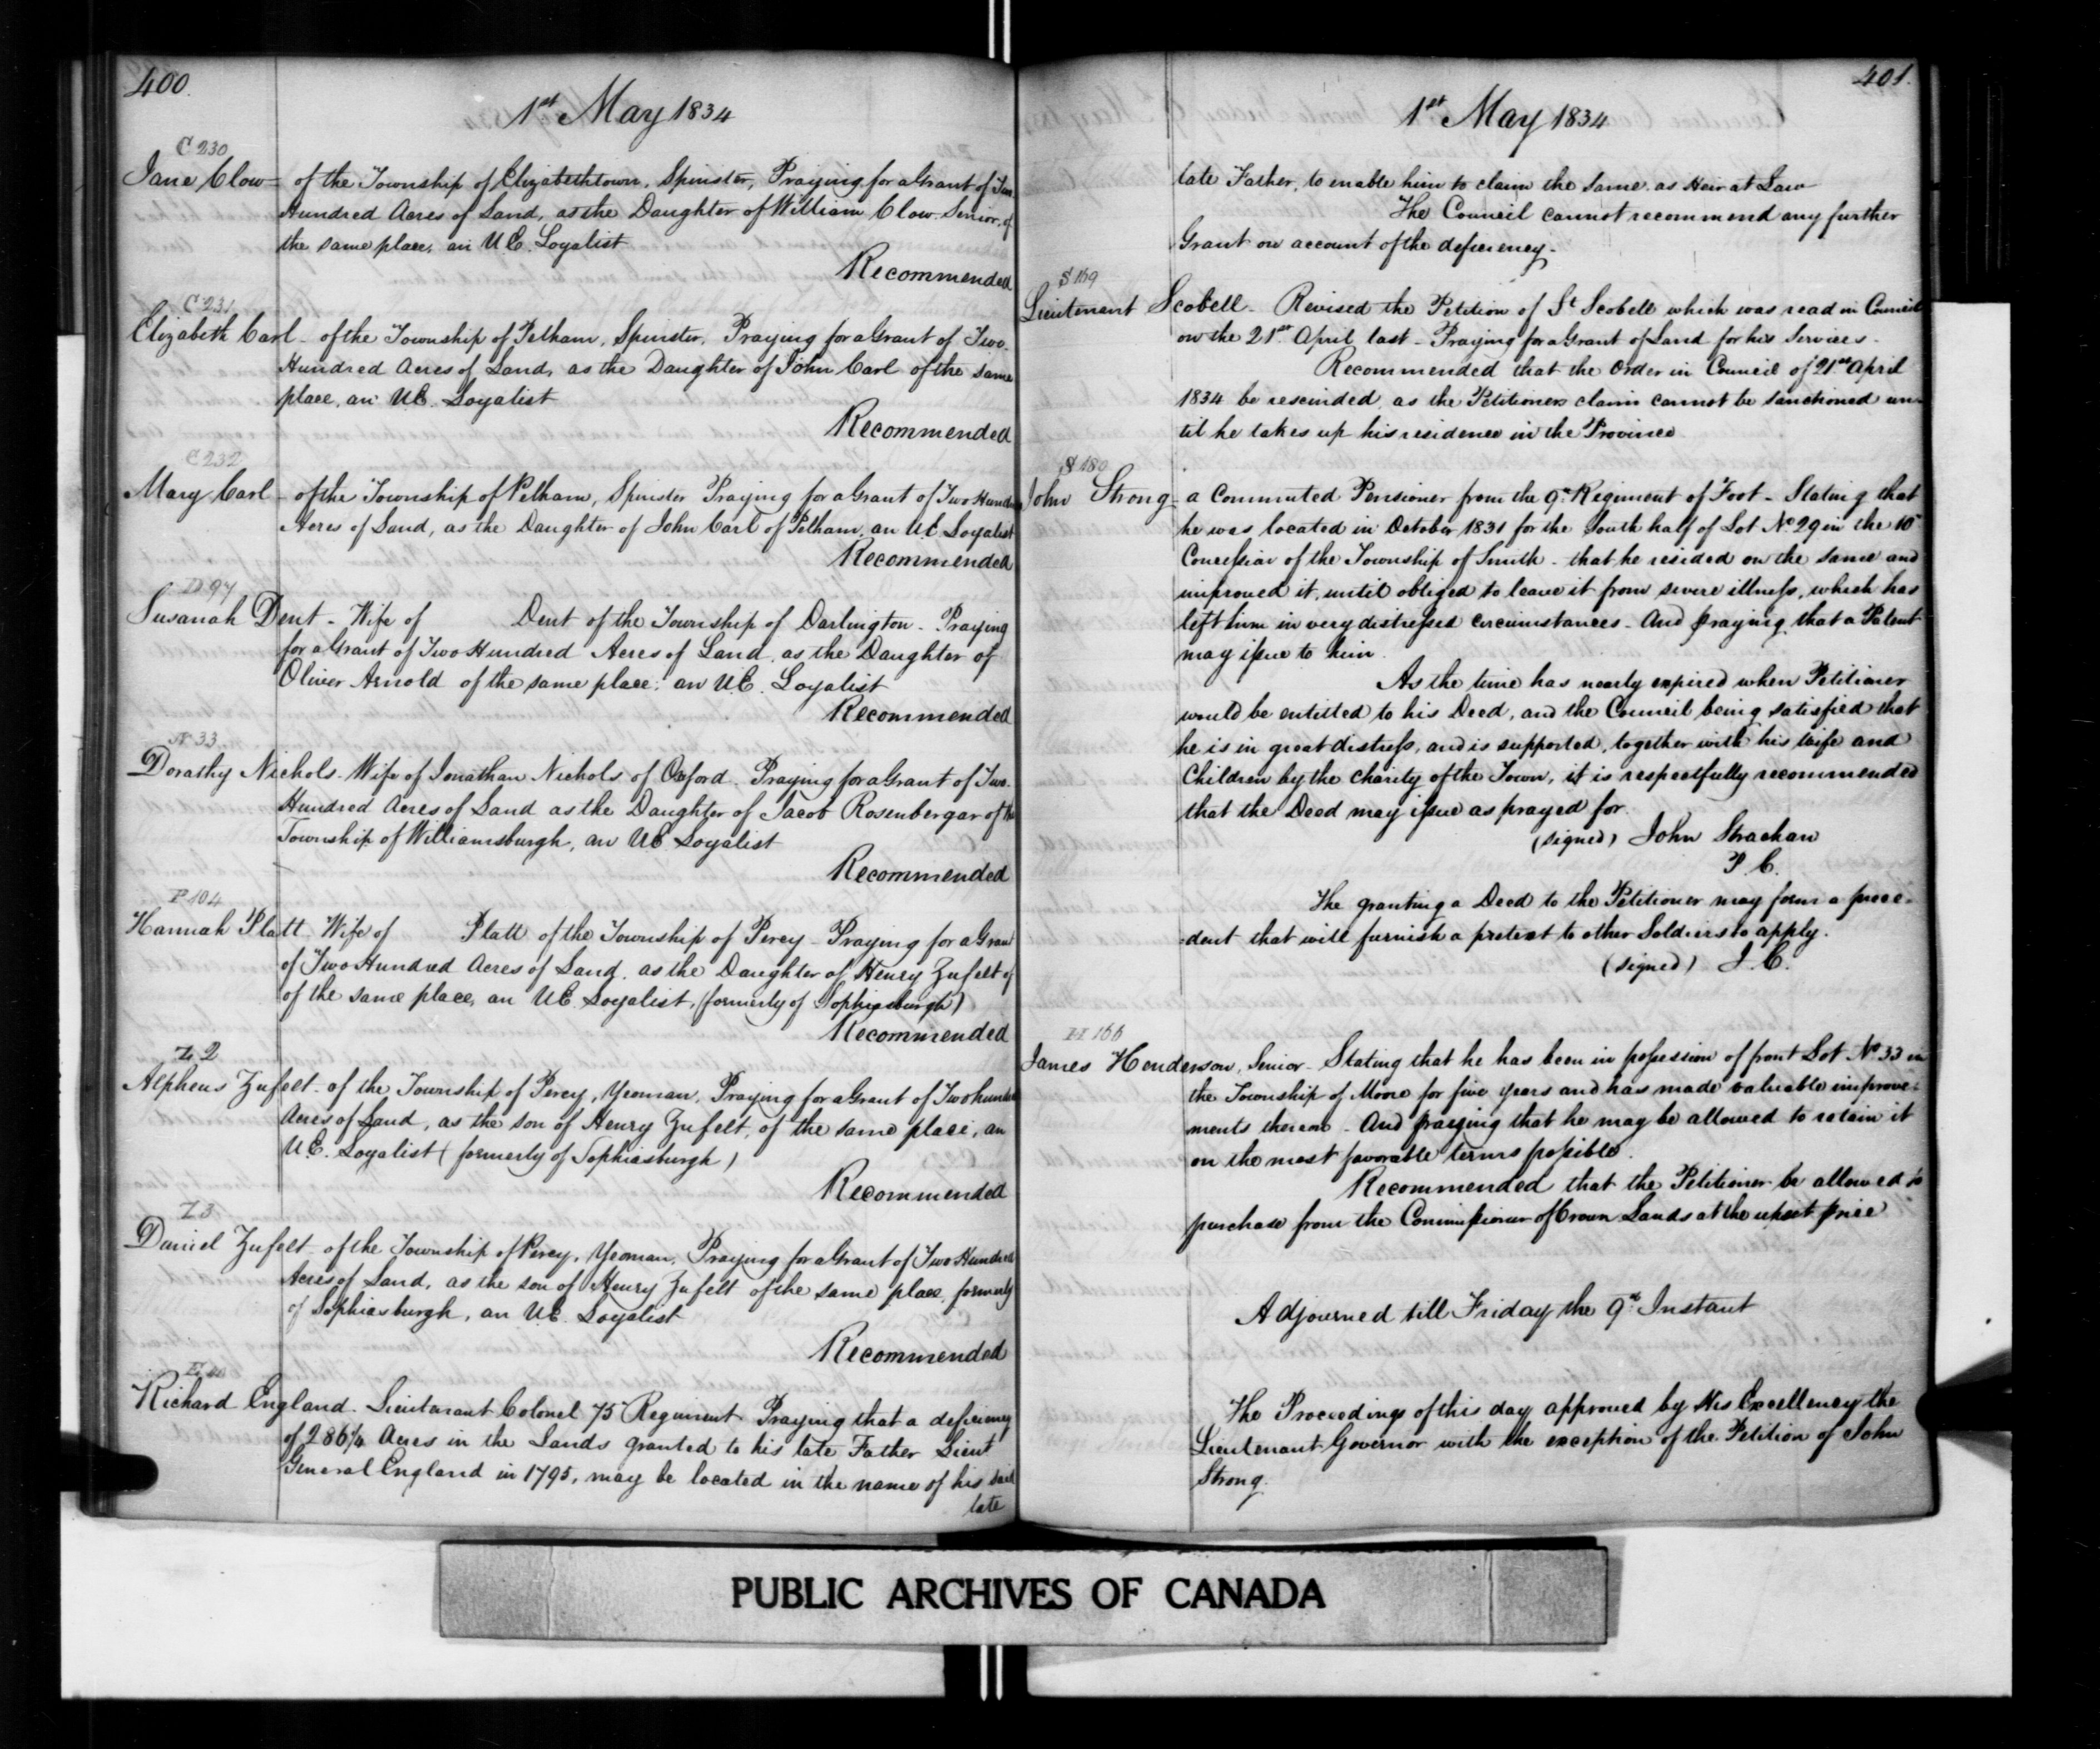 400.
1st May 1834
C 230
Jane Clow - of the Township of Elizabethtown, Spinster, Praying for a Grant of Two
Hundred Acres of Land, as the Daughter of William Clow Senior, of
the same place, an U.E. Loyalist
Recommended
C 231
Elizabeth Carl - of the Township of Pelham, Spinster, Praying for a Grant of Two
Hundred Acres of Land, as the Daughter of John Carl of the same
place, an UE. Loyalist
Recommended
C 232
Mary Carl - of the Township of Pelham, Spinster Praying for a Grant of Two Hundred
Acres of Land, as the Daughter of John Carl of Pelham, an UE Loyalist
Recommended
D 97
Susanah Dent - Wife of Dent of the Township of Darlington - Praying
for a Grant of Two Hundred Acres of Land, as the Daughter of
Oliver Arnold of the same place. an U.E. Loyalist
Recommended
N 33
Dorathy Nichols. Wife of Jonathan Nichols of Oxford. Praying for a Grant of Two
Hundred Acres of Land as the Daughter of Jacob Rosenbergar of the
Township of Williamsburgh, an UE Loyalist
Recommended
P 104
Hannah Platt. Wife of Platt of the Township of Percy - Praying for a Grant
of Two Hundred Acres of Land. as the Daughter of Henry Zufelt of
of the same place, an UE. Loyalist, (formerly of Sophiasburgh)
Recommended
Z 2
Alpheus Zufelt - of the Township of Percy, Yeoman, Praying for a Grant of Two hundred
Acres of Land, as the son of Henry Zufelt, of the same place, an
U.E. Loyalist (formerly of Sophiasburgh)
Recommended
Z 3
Daniel Zufelt - of the Township of Percy, Yeoman, Praying for a Grant of Two Hundred
Acres of Land, as the son of Henry Zufelt of the same place, formerly
of Sophiasburgh, an U.E. Loyalist
Recommended
Richard England. Lieutenant Colonel 75 Regiment Praying that a deficiency
of 286¼ Acres in the Lands granted to his late Father Lieut
General England in 1795, may be located in the name of his said
late
401.
1st May 1834
late Father, to enable him to claim the same as Heir at Law
The Council cannot recommend any further
Grant on account of the deficiency.
S 169
Lieutenant Scobell - Revised the Petition of Lt Scobell which was read in Council
on the 21st April last - Praying for a Grant of Land for his Services -
Recommended that the Order in Council of 21st April
1834 be rescinded, as the Petitioners claim cannot be sanctioned un-
til he takes up his residence in the Province
S 180
John Strong - a Commuted Pensioner from the 9th Regiment of Foot - Stating that
he was located in October 1831 for the South half of Lot No 29 in the 10th
Concession of the Township of Smith - that he resided on the same and
improved it, until obliged to leave it from severe illness, which has
left him in very distressed circumstances - And praying that a Patent
may issue to him.
As the time has nearly expired when Petitioner
would be entitled to his Deed, and the Council being satisfied that
he is in great distress, and is supported, together with his wife and
Children by the charity of the Town, it is respectfully recommended
that the Deed may issue as prayed for.
(signed) John Strachan
P. C.
The granting a Deed to the Petitioner may form a prece-
-dent that will furnish a pretext to other Soldiers to apply.
(signed) J. C.
H 166
James Henderson, Senior - Stating that he has been in possession of front Lot No 33 in
the Township of Moore for five years and has made valuable improve-
ments thereon - And praying that he may be allowed to retain it
on the most favorable terms possible.
Recommended that the Petitioner be allowed to
purchase from the Commissioner of Crown Lands at the upset price
Adjourned till Friday the 9th Instant
The Proceedings of this day approved by His Excellency the
Lieutenant Governor with the exception of the Petition of John
Strong.
PUBLIC ARCHIVES OF CANADA